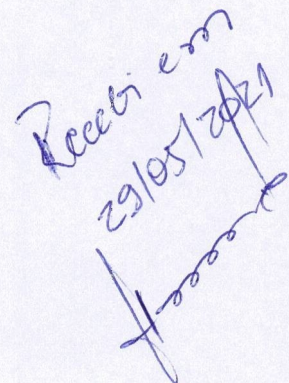 Recebi em
29/05/2021